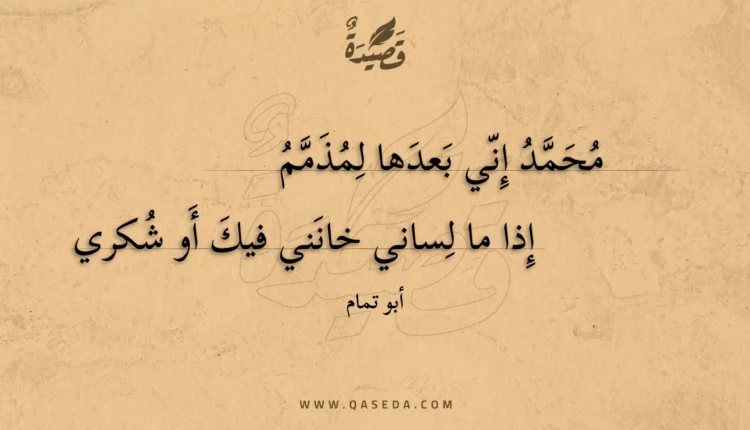 قَصِيْدَةٌ
مُحَمَّدُ إِنّي بَعدَها لِمُذَمَّمُ
إِذا ما لِساني خانَني فيكَ أَو شُكري
أبو تمام
WWW.QASEDA.COM